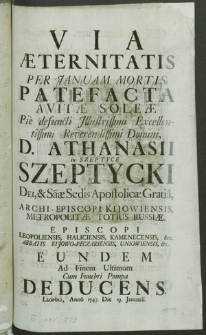 VIA
ÆTERNITATIS
PER JANUAM MORTIS
PATEFACTA
AVITÆ SOLEÆ
Piè defuncti Illustrissimi Excellen-
tissimi Reverendissimi Domini,
D. ATHANASII
in SZEPTYCE
SZEPTYCKI
DEI, & Sãæ Sedis Apostolicæ Gratiâ,
ARCHI-EPISCOPI KIJOWIENSIS,
METROPOLITÆ TOTIUS RUSSIÆ,
EPISCOPI
LEOPOLIENSIS, HALICIENSIS, KAMENECENSIS, &c.
ABBATIS KIJOWO-PECZARIENSIS, UNIOWIENSIS, &c.
EUNDEM
Ad Finem Ultimum
Cum Funebri Pompa
DEDUCENS
Leopoli, Annô 1747. Die 19. Januarii.